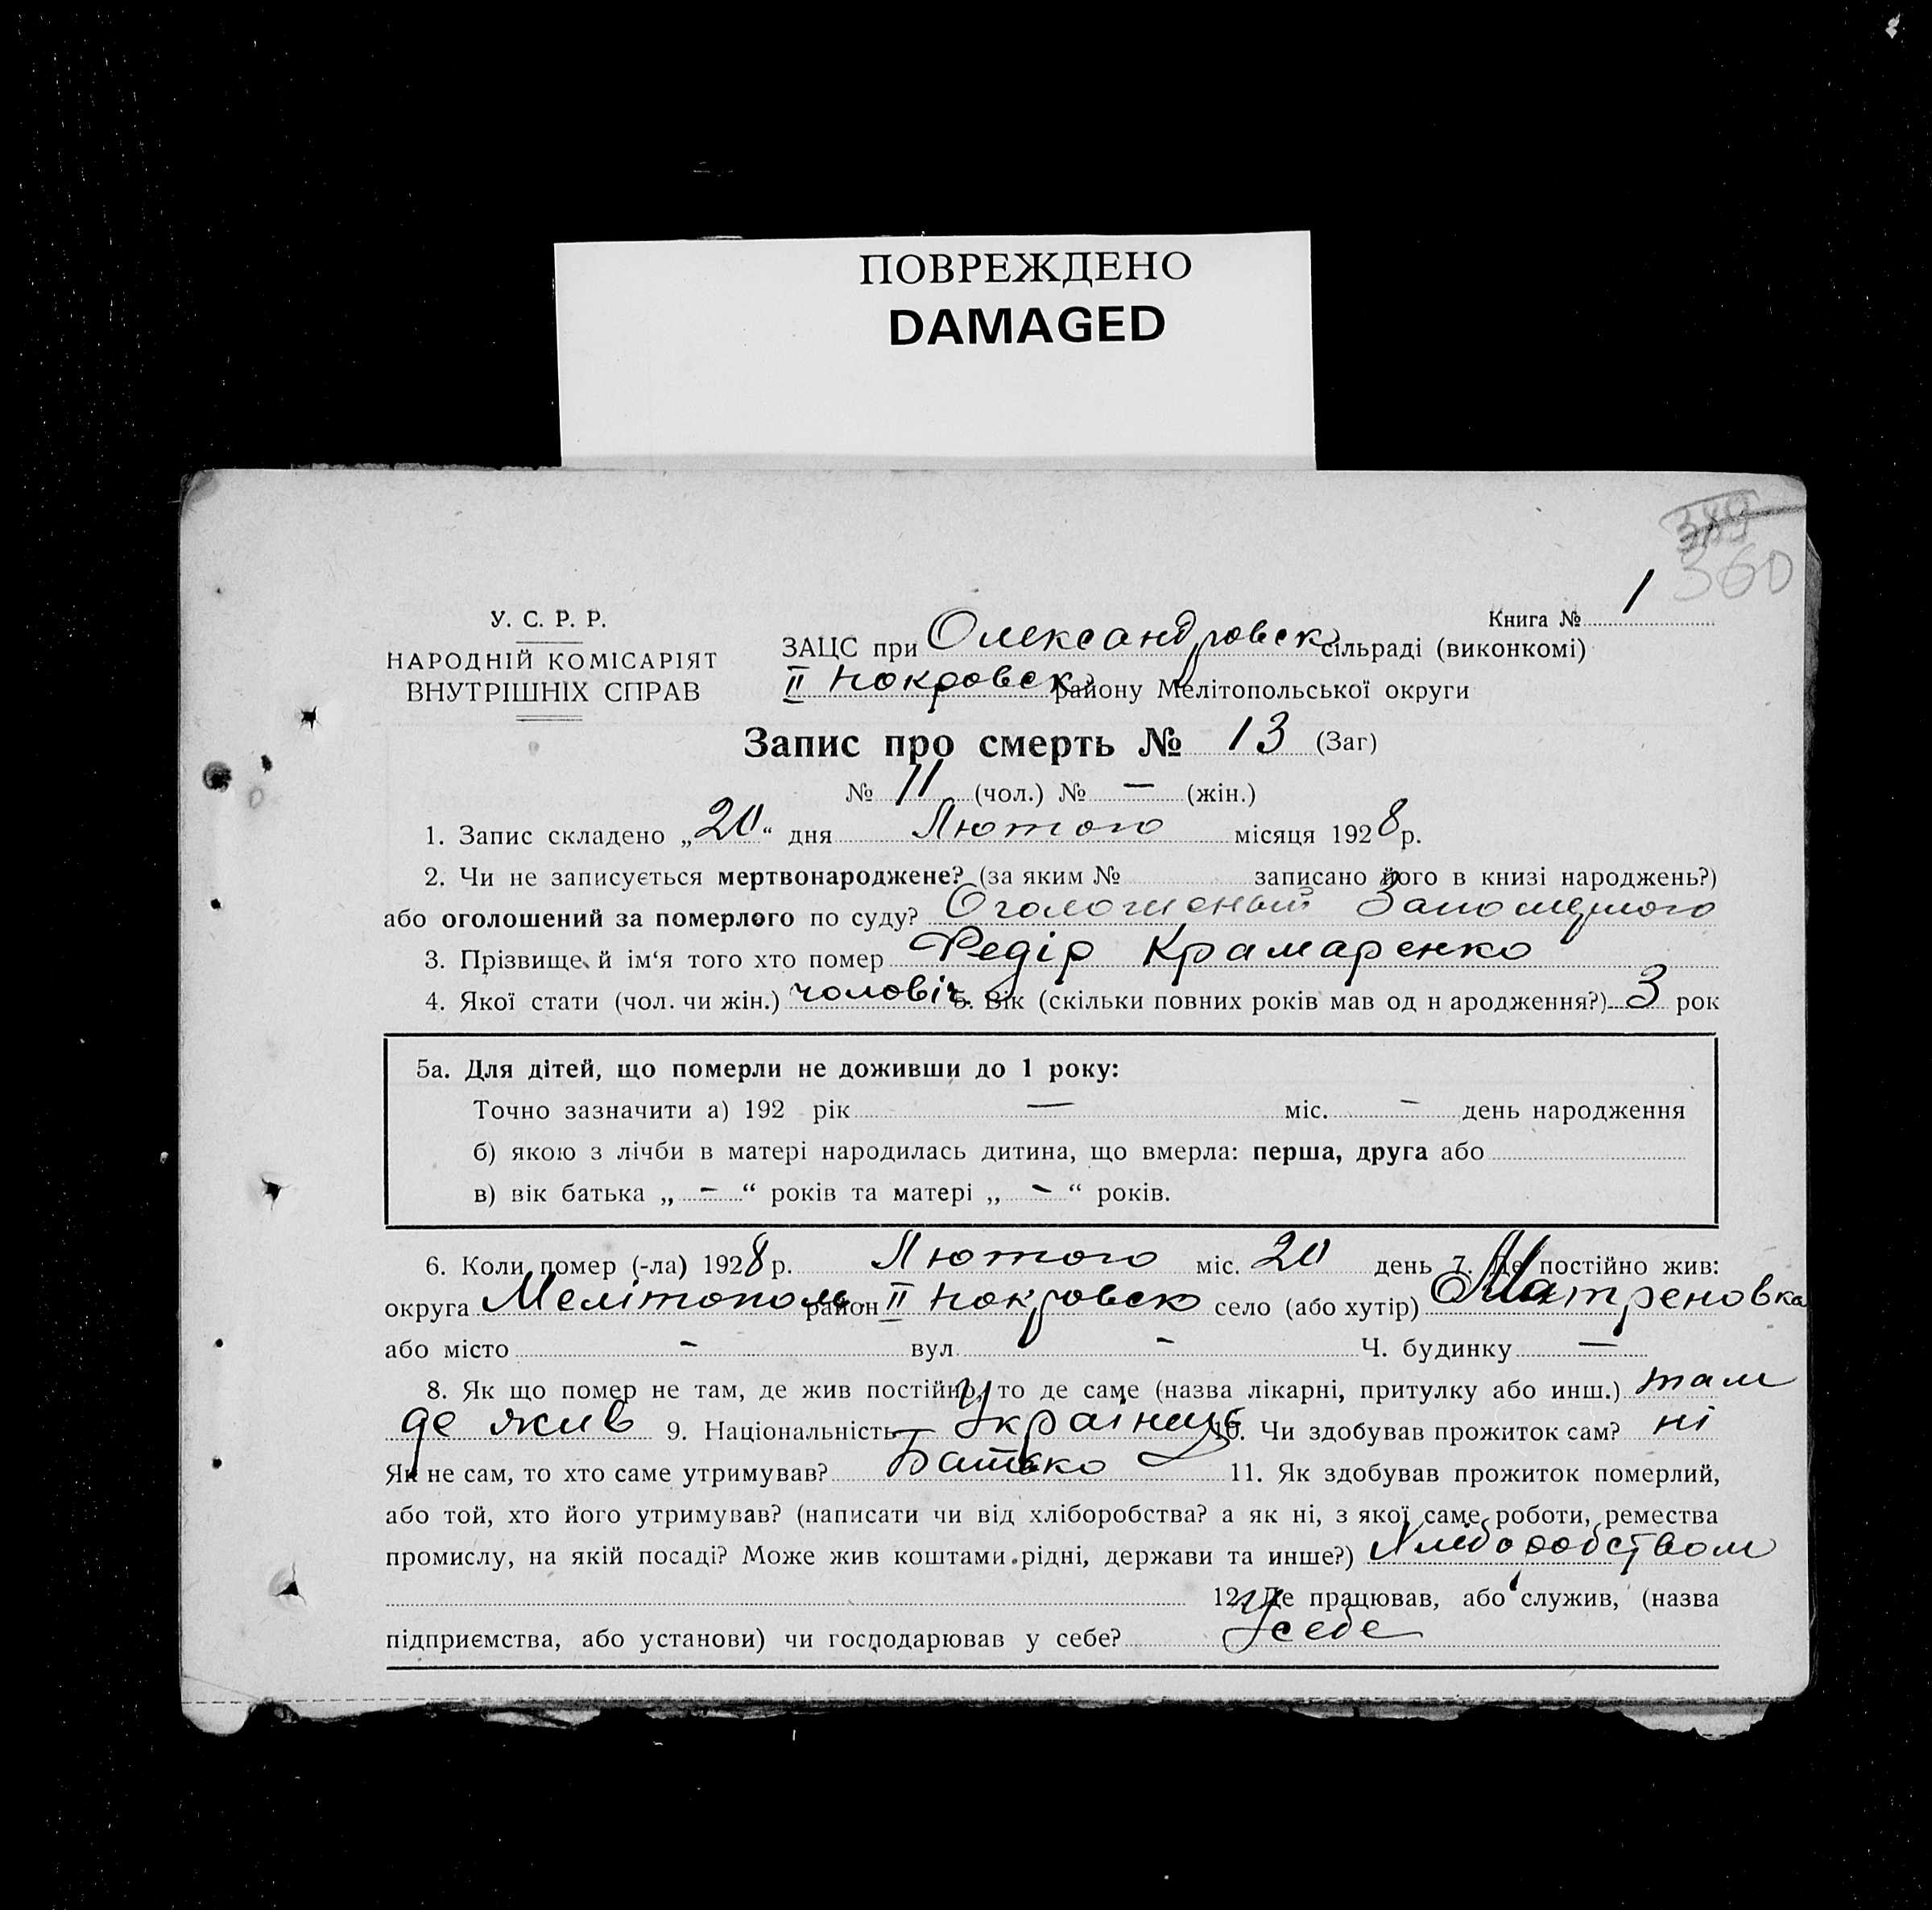 ПОВРЕЖДЕНО
DAMAGED
389
360
У. С. Р. Р.
НАРОДНІЙ КОМІСАРІЯТ
ВНУТРІШНІХ СПРАВ
Книга № 1
ЗАЦС при Олександровск сільраді (виконкомі)
II Покровск району Мелітопольської округи
Запис про смерть № 13 (Заг)
№ 11 (чол.) № — (жін.)
1. Запис складено „20“ дня Лютого місяця 1928 р.
2. Чи не записується мертвонароджене? (за яким № записано його в книзі народжень?)
або оголошений за померлого по суду? Оголошеный Запомерлого
3. Прізвище й ім‘я того хто помер Федір Крамаренко
4. Якої стати (чол. чи жін.) чоловіч. 5. Вік (скільки повних років мав од н ародження?) 3 рок
5а. Для дітей, що померли не доживши до 1 року:
Точно зазначити а) 192 рік — міс. - день народження
б) якою з лічби в матері народилась дитина, що вмерла: перша, друга або
в) вік батька „ - “ років та матері „ - “ років.
6. Коли помер (-ла) 1928 р. Лютого міс. 20 день 7. Де постійно жив:
округа Мелітополь район II Покровск село (або хутір) Матреновка
або місто - вул - Ч. будинку —
8. Як що помер не там, де жив постійно, то де саме (назва лікарні, притулку або инш.) там
де жив 9. Національність Українець 10. Чи здобував прожиток сам? ні
Як не сам, то хто саме утримував? Батько 11. Як здобував прожиток померлий,
або той, хто його утримував? (написати чи від хліборобства? а як ні, з якої саме роботи, ремества
промислу, на якій посаді? Може жив коштами рідні, держави та инше?) Хліборобством
12. Де працював, або служив, (назва
підприємства, або установи) чи господарював у себе? У себе